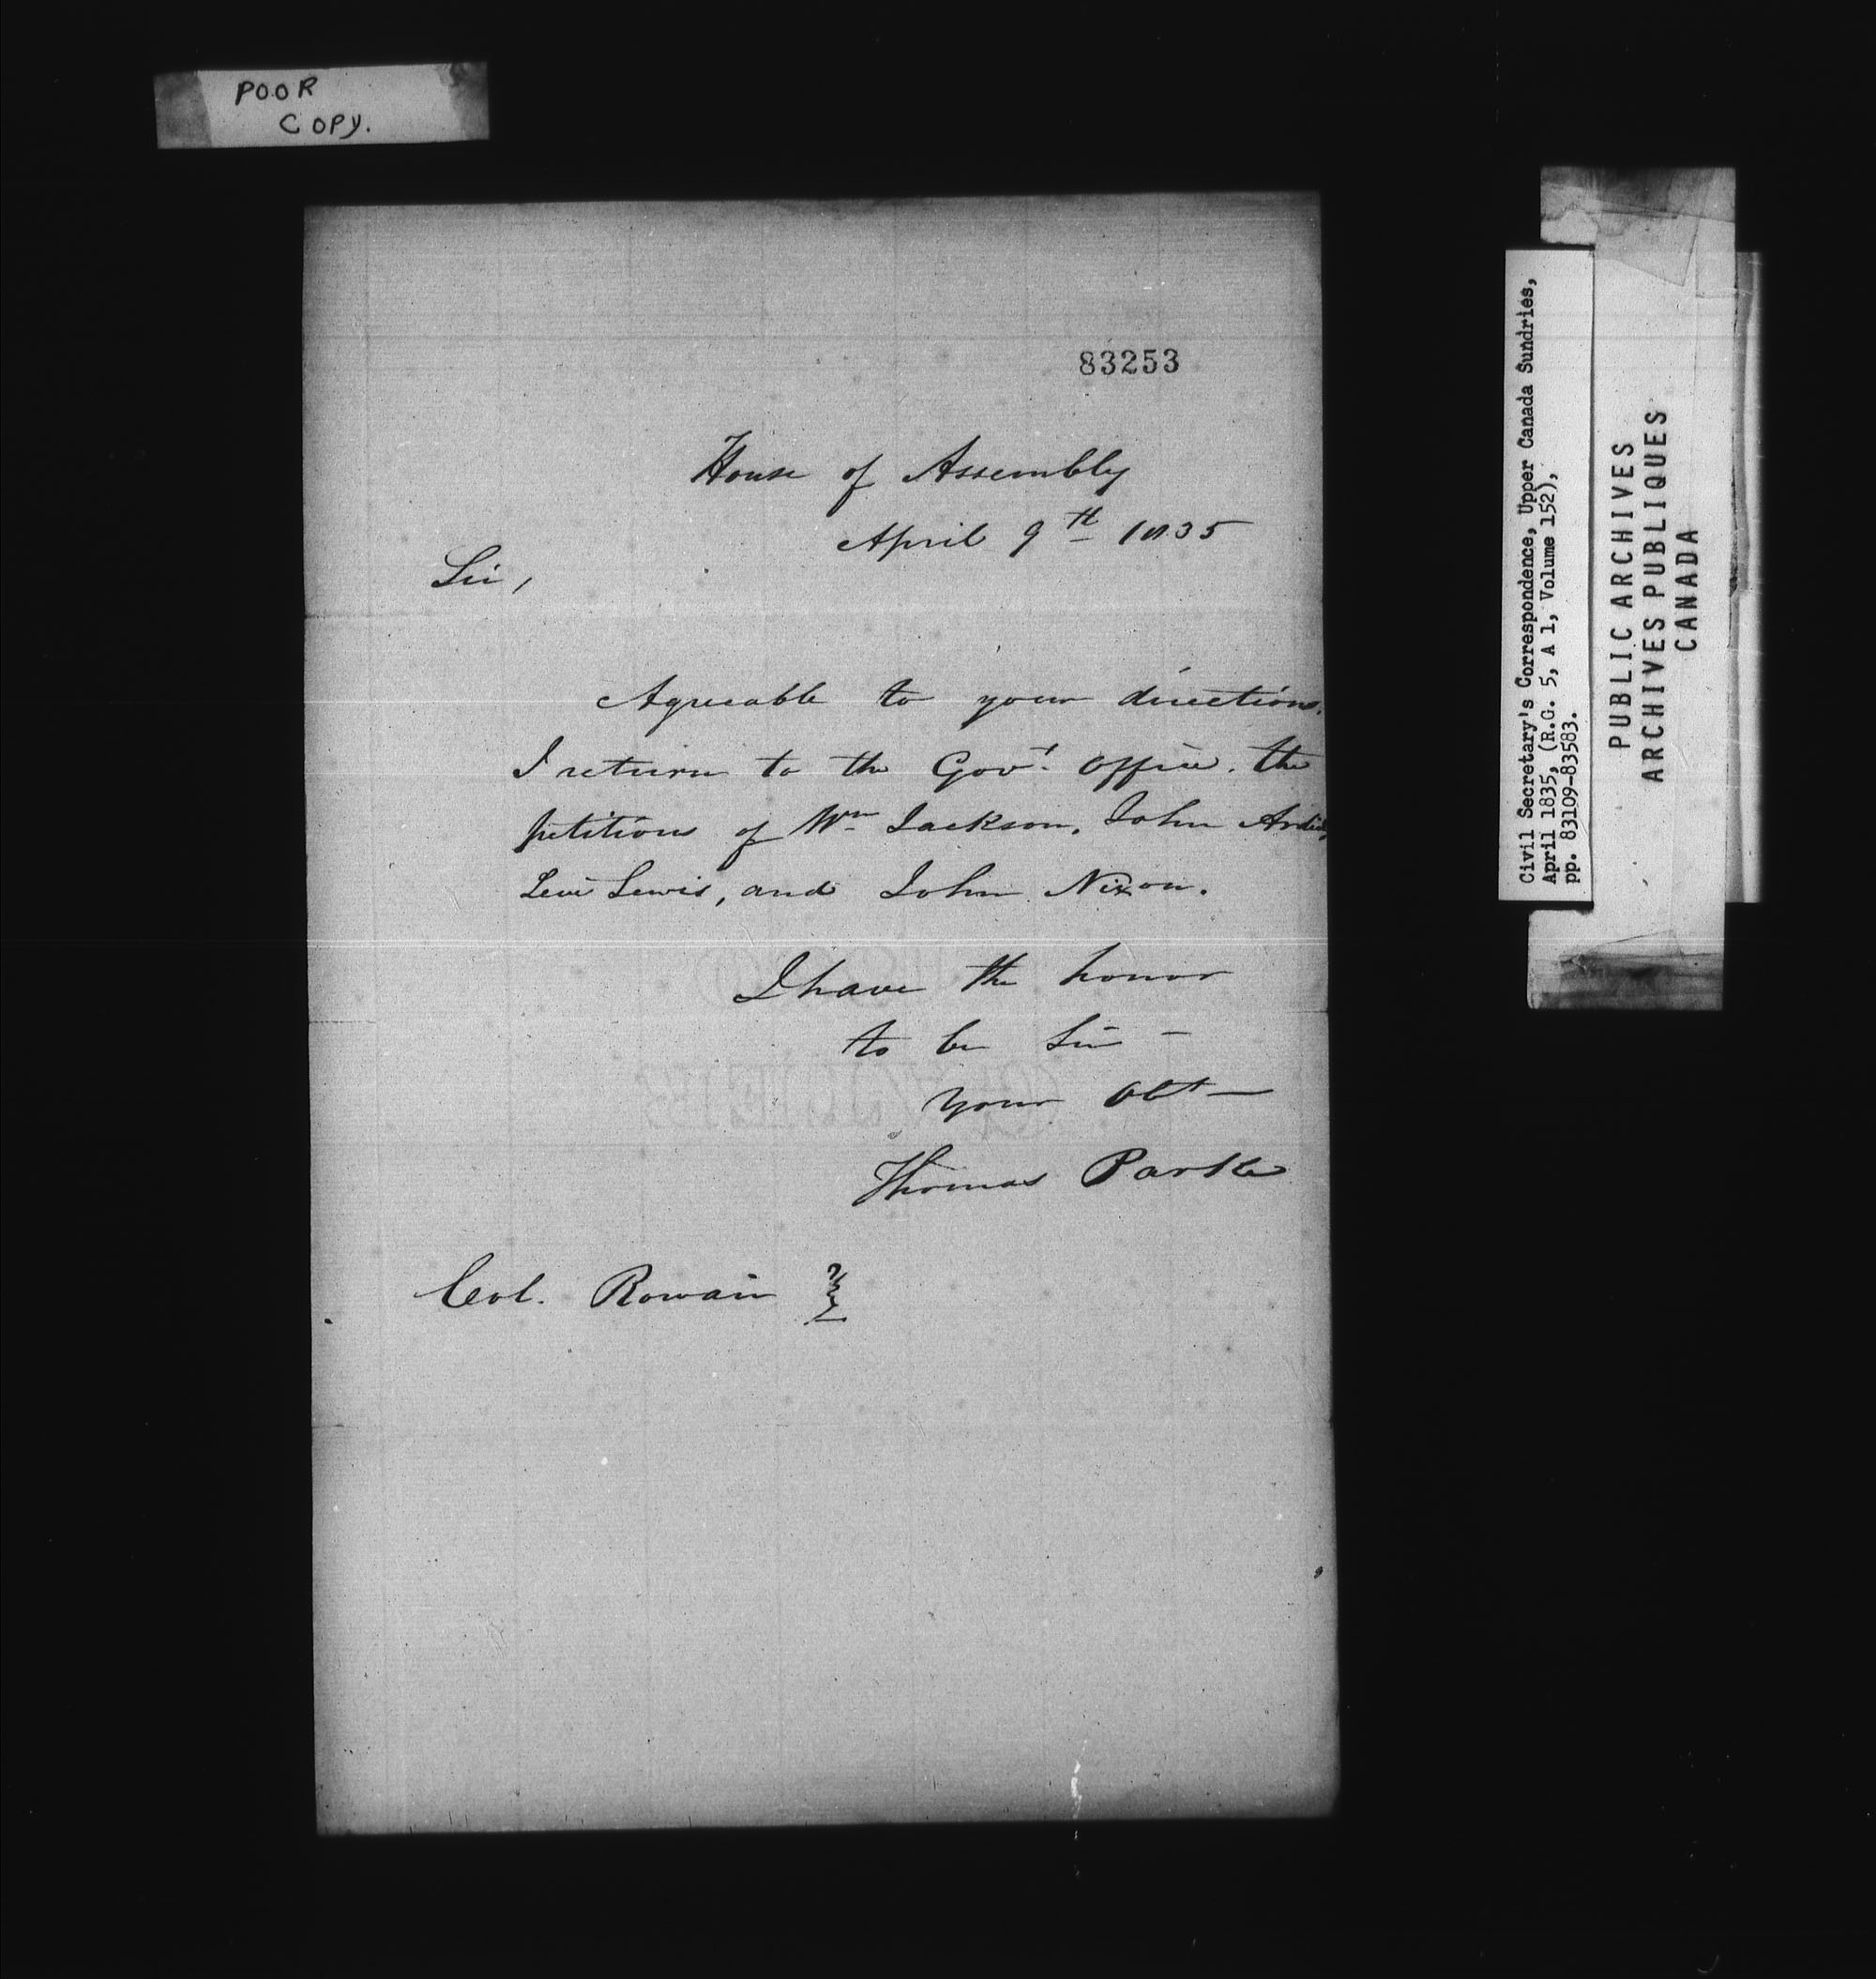 POOR
COPY.
83253
House of Assembly
April 9th 1835
Sir,
Agreeable to your directions.
I return to the Govt. Office. the
petitions of Wm Jackson, John
Levi Lewis, and John Nixon.
I have the honor
to be Sir —
Your Obt —
Thomas Parke
Col. Rowan
Civil Secretary's Correspondence, Upper Canada Sundries,
April 1835, (R.G. 5, A 1, Volume 152),
pp. 83109-83583.
PUBLIC ARCHIVES
ARCHIVES PUBLIQUES
CANADA